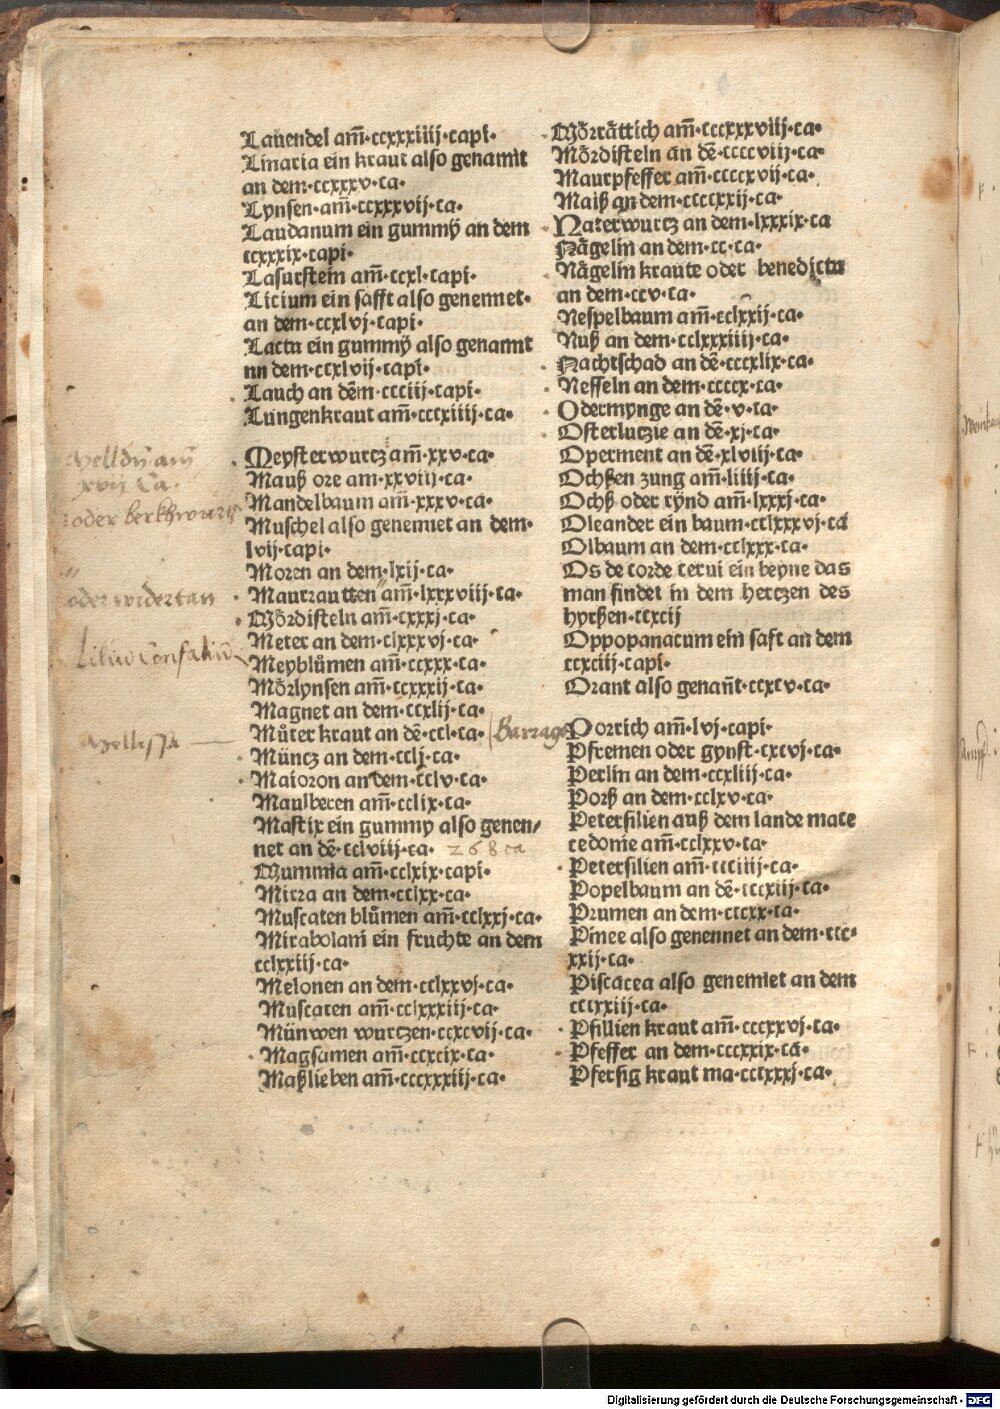 Lauendel am̄·ccxxxiiij·capi·
Linaria ein kraut also genamt
an dem·ccxxxv·ca·
Lynsen·am̄·ccxxxvij·ca·
Laudanum ein gummÿ an dem
ccxxxix·capi·
Lasurstein am̄·ccxl·capi·
Licium ein safft also genennet·
an dem·ccxlvj·capi·
Lacta ein gummÿ also genannt
nn dem·ccxlvij·capi·
Lauch an dem·ccciij·capi·
Lungenkraut am̄·cccxiiij·ca·
Meysterwurcz am̄·xxv·ca·
Mauß ore am·xxviij·ca·
Mandelbaum am̄·xxxv·ca·
Muschel also genennet an dem·
lvij·capi·
Moren an dem·lxij·ca·
Maurrautten am̄·lxxxviij·ca·
Moͤrdisteln am̄·cxxxj·ca·
Meter an dem·clxxxvj·ca·
Meybluͤmen am̄·ccxxx·ca·
Moͤrlynsen am̄·ccxxxij·ca·
Magnet an dem·ccxlij·ca·
Muͤter kraut an dē·ccl·ca·
Müncz an dem·cclj·ca·
Maioron an dem·cclv·ca·
Maulberen am̄·cclix·ca·
Mastix ein gummy also genen/
net an dē·cclviij·ca· 268 ca
Mummia am̄·cclxix·capi·
Mirra an dem·cclxx·ca·
Muscaten bluͤmen am̄·cclxxj·ca·
Mirabolani ein fruchte an dem
cclxxiij·ca·
Melonen an dem·cclxxvj·ca·
Muscaten am̄·cclxxxiij·ca·
Münwen wurczen·ccxcvij·ca·
Magsamen am̄·ccxcix·ca·
Maßlieben am̄·cccxxxiij·ca·
xvij Ca·
oder berkhwurtz
oder widertan
Liliu Conualiu
Mellissa
Barrage
Moͤrraͤttich am̄·cccxxxviij·ca·
Moͤrdisteln an dē·ccccviij·ca·
Maurpfeffer am̄·ccccxvij·ca·
Maiß an dem·ccccxxij·ca·
Naterwurcz an dem·lxxxix·ca
Naͤgelin an dem·cc·ca·
Naͤgelin kraute oder benedicta
an dem·ccv·ca·
Nespelbaum am̄·cclxxij·ca·
Nuß an dem·cclxxxiiij·ca·
Nachtschad an dē·cccxlix·ca·
Nesseln an dem·ccccx·ca·
Odermynge an dē·v·ca·
Osterluczie an dē·xj·ca·
Operment an dē·xlviij·ca·
Ochßen zung am̄·liiij·ca·
Ochß oder rÿnd am̄·lxxxj·ca·
Oleander ein baum·cclxxxvj·ca
Olbaum an dem·cclxxx·ca·
Os de corde cerui ein beyne das
man findet in dem herczen des
hyrßen·ccxcij
Oppopanacum ein saft an dem
ccxciij·capi·
Orant also genañt·ccxcv·ca·
Porrich am̄·lvj·capi·
Pfremen oder gynst·cxcvj·ca·
Perlin an dem·ccxliij·ca·
Porß an dem·cclxv·ca·
Petersilien auß dem lande mace
cedonie am̄·cclxxv·ca·
Petersilien am̄·ccciiij·ca·
Popelbaum an dē·cccxiij·ca·
Prumen an dem·cccxx·ca·
Pinee also genennet an dem·ccc·
xxij·ca·
Piscacea also genennet an dem
cccxxiij·ca·
Psillien kraut am̄·cccxxvj·ca·
Pfeffer an dem·cccxxix·ca·
Pfersig kraut ma·cccxxxj·ca·
Digitalisierung gefördert durch die Deutsche Forschungsgemeinschaft - DFG